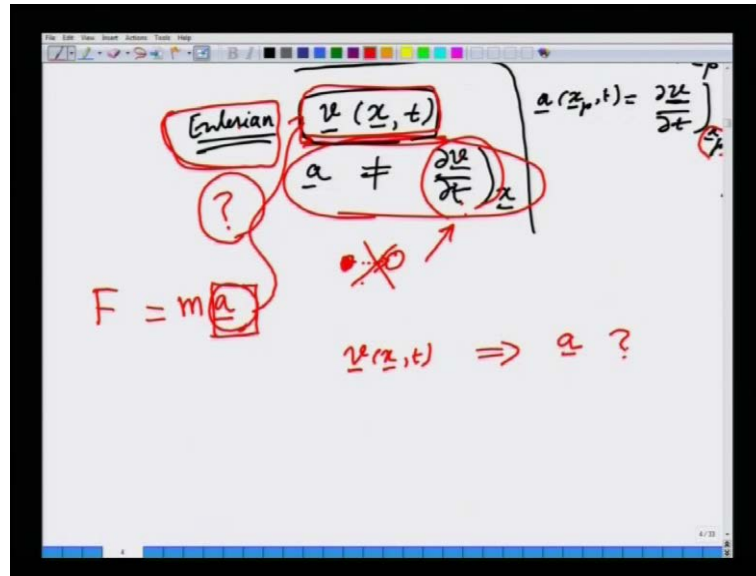 File Edit View Insert Actions Tools Help
Eulerian v (x, t)
a (x_p, t) = ∂v/∂t)x_p
a ≠ ∂v/∂t)x
?
F = m a
v (x, t) ⇒ a ?
4/33
4